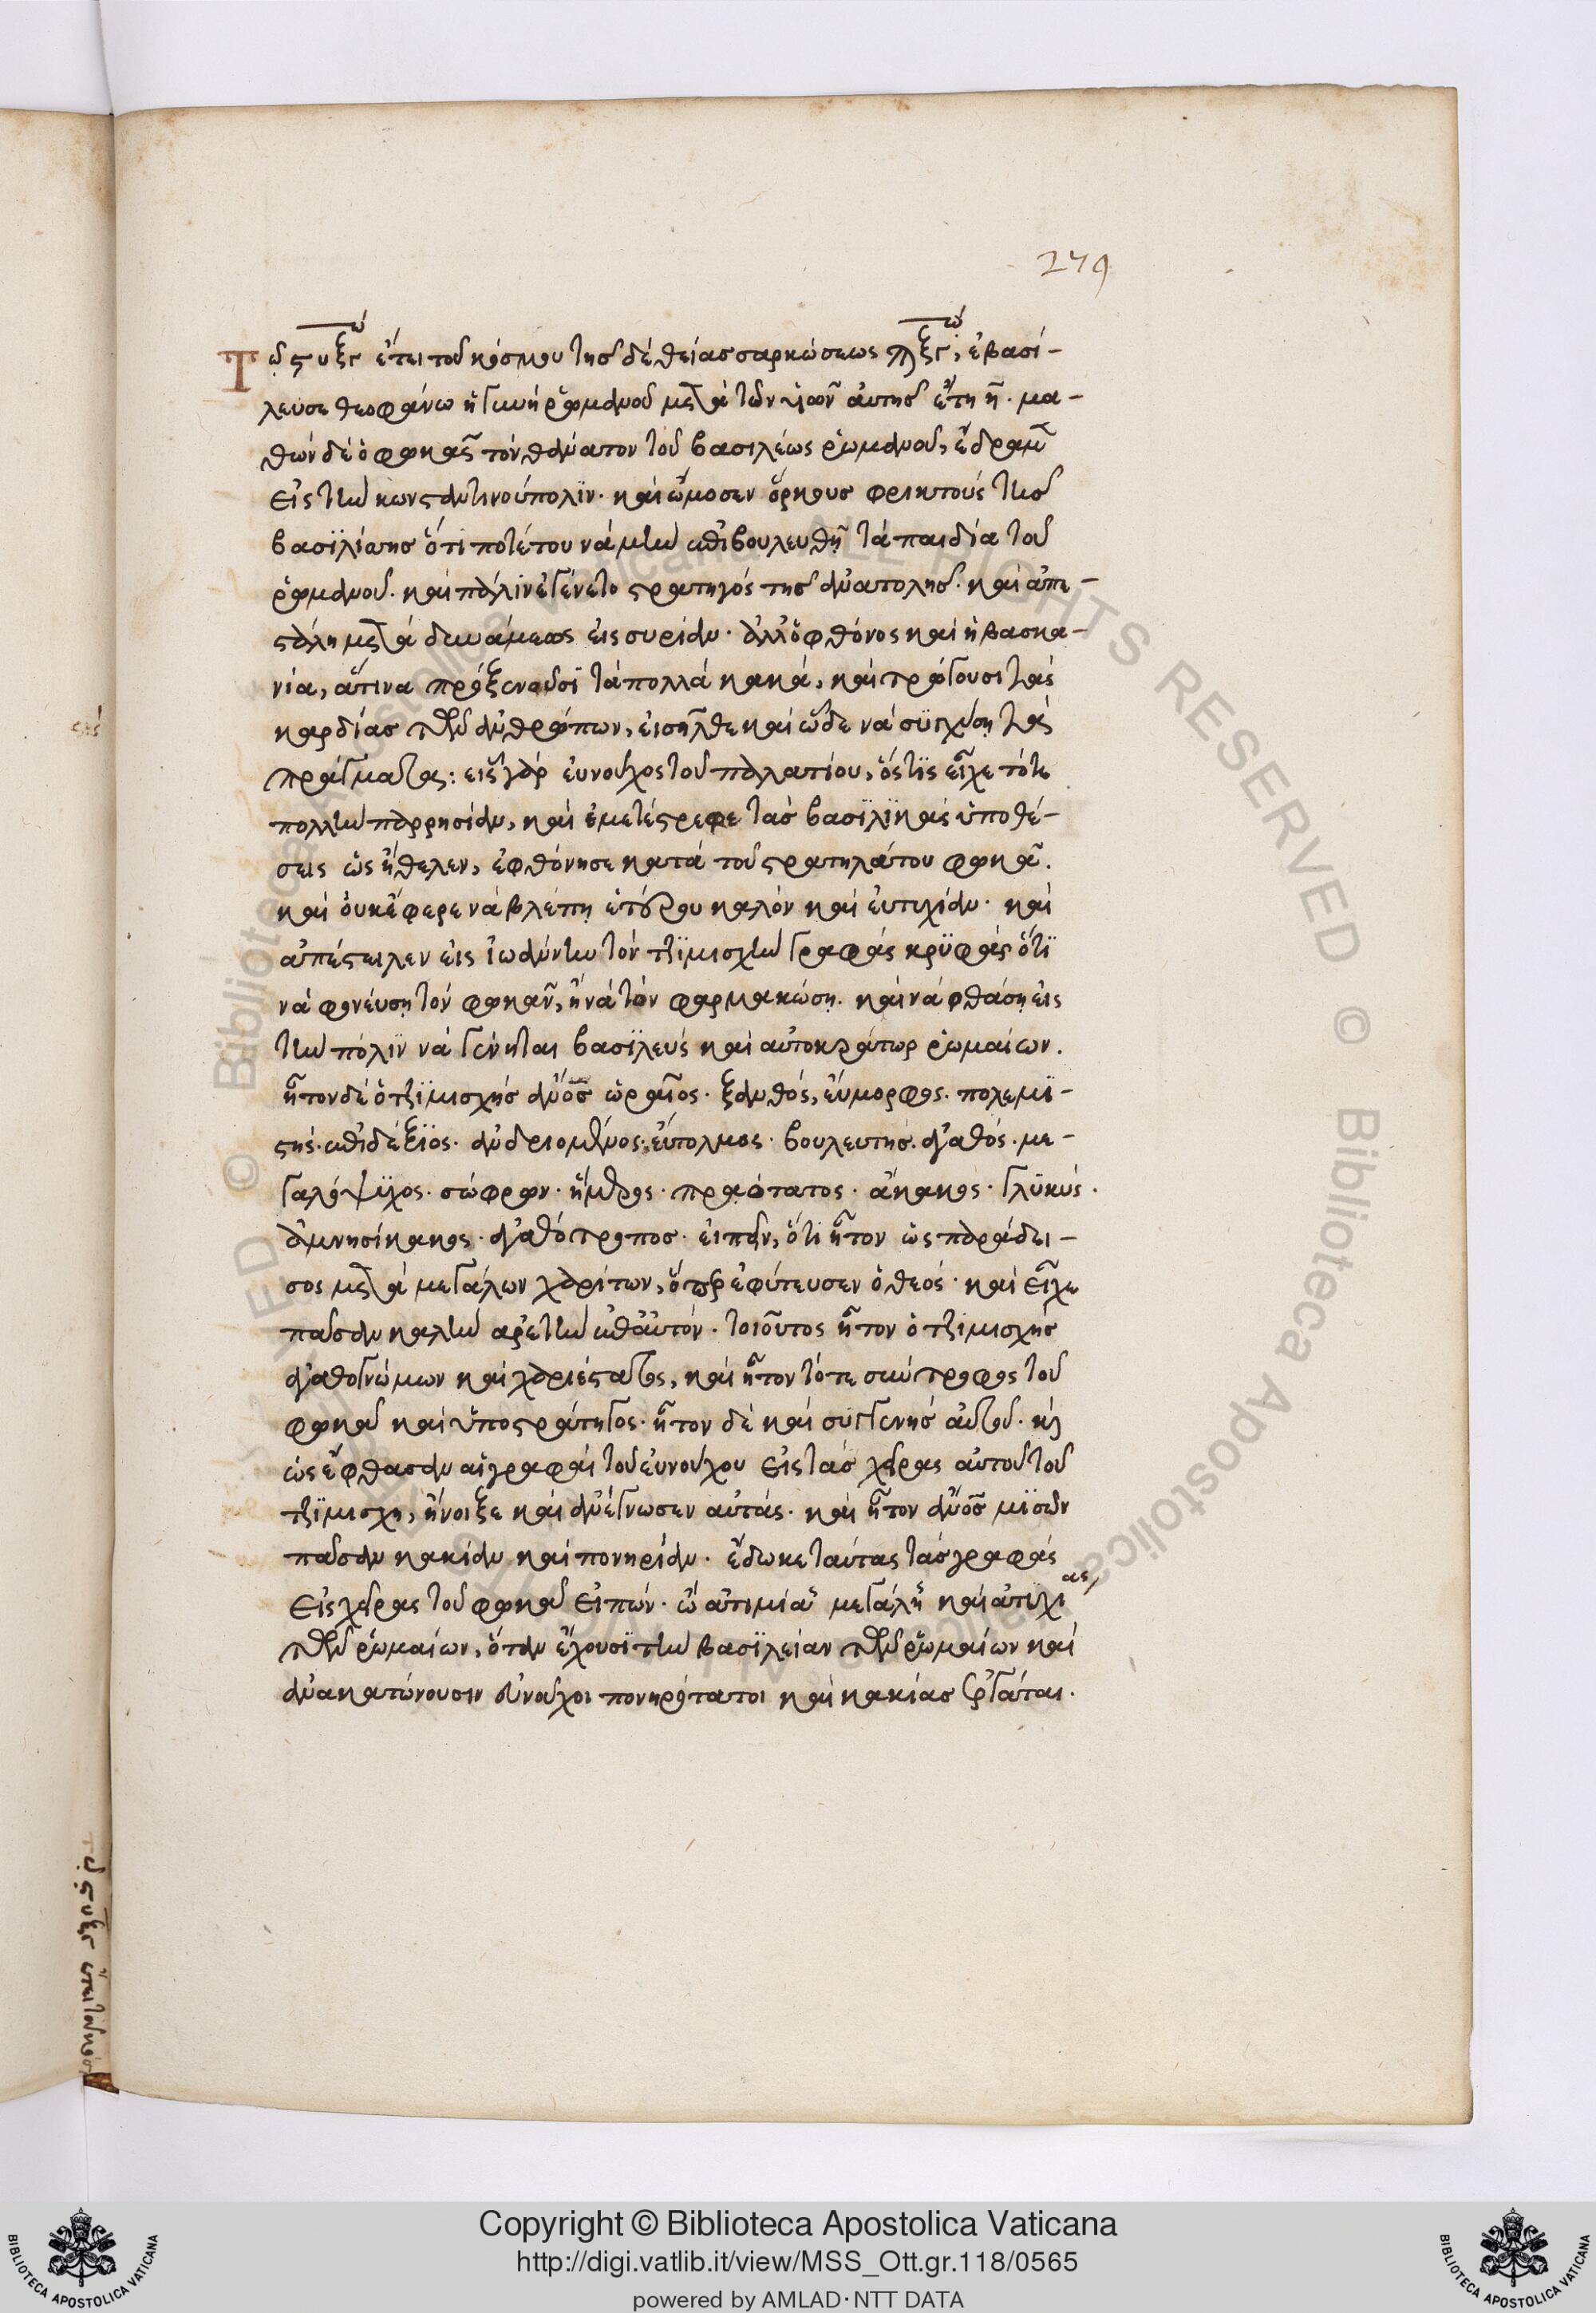 279
Τῷ ϛυξϛῷ ἔτει τοῦ κόσμου τῆσ δὲ θείασ σαρκώσεως ϡξϛῷ, ἐβασί-
λευσε θεοφάνω ἡ γυνὴ ῥωμανοῦ μετὰ τῶν υἱῶν ἀυτῆσ ἔτη η̄. μα-
θὼν δὲ ὁ φωκᾶς τὸν θάνατον τοῦ βασιλέως ῥωμανοῦ, ἔδραμε
εἰς τὴν κωνσταντινούπολϊν. καὶ ὤμοσεν ὅρκουσ φρικτοὺς τῆσ
βασϊλίσσησ ὅτι ποτέ του νὰ μὴν ἐπιβουλευθῇ τὰ παιδία τοῦ
ῥωμανοῦ. καὶ πάλιν ἐγένετο στρατηγός τῆσ ἀνατολῆσ. καὶ ἀπε-
στάλη μετὰ δυνάμεως εἰς συρίαν. ἀλλ' ὁ φθόνος καὶ ἡ βασκα-
νία, ἅτινα προξενοῦσϊ τὰ πολλὰ κακά, καὶ τρώγουσι τὰς
καρδίασ τῶν ἀνθρώπων, εἰσῆλθε καὶ ὧδε νὰ συγχύσῃ τὰς
πράγματας: εἷς γὰρ ἐυνοῦχος τοῦ παλατίου, ὅστϊς εἶχε τότε
πολλὴν παρρησίαν, καὶ ἐμετέστρεφε τὰσ βασϊλϊκὰς ὑποθέ-
σεις ὡς ἤθελεν, ἐφθόνησε κατὰ τοῦ στρατηλάτου φωκᾶ.
καὶ ὀυκ ἔφερε νὰ βλέπῃ ἑτέρου καλὸν καὶ ἐυτυχίαν. καὶ
ἀπέστειλεν εἰς ἰωάννην τὸν τζϊμισχὴν γραφὰς κρϋφὰς ὅτϊ
νὰ φονέυσῃ τὸν φωκᾶν, ἢ νὰ τὸν φαρμακώσῃ. καὶ νὰ φθάσῃ εἰς
τὴν πόλϊν νὰ γένηται βασϊλεὺς καὶ αὐτοκράτωρ ῥωμαίων.
ἦτον δὲ ὁ τζϊμισχῆσ ἄνος ὡραῖος. ξανθός, ἔυμορφος. πολεμϊ-
στής. ἐπιδέξϊος. ἀνδριομένος, εὔτολμος. βουλευτῆσ. ἀγαθός. με-
γαλόψϋχος. σώφρων. ἥμερος. πραότατος. ἄκακος. γλϋκύς.
ἀμνησίκακος. ἀγαθότροποσ. εἰπεῖν, ὅτι ἦτον ὡς παράδει-
σος μετὰ μεγάλων χαρίτων, ὅπερ ἐφύτευσεν ὁ θεός. καὶ εἶχε
πᾶσαν καλὴν ἀρετὴν ἐπ' αὐτόν. τοιοῦτος ἦτον ὁ τζιμισχῆσ
ἀγαθογνώμων καὶ χαριέστατος, καὶ ἦτον τότε σύντροφος τοῦ
φωκᾶ καὶ ὑποστράτηγος. ἦτον δὲ καὶ συγγενὴσ ἀυτοῦ. κὶ
ὡς ἔφθασαν αἱ γραφαὶ τοῦ ἐυνούχου εἰς τὰσ χεῖρας αὐτοῦ τοῦ
τζϊμισχῆ, ἤνοιξε καὶ ἀνέγνωσεν αὐτάς. καὶ ἦτον ἄνος μϊσῶν
πᾶσαν κακίαν καὶ πονηρίαν. ἔδωκε ταύτας τὰσ γραφὰς
εἰς χεῖρας τοῦ φωκᾶ εἰπών. ὢ ἀτιμία μεγάλη καὶ ἀτυχίας
τῶν ῥωμαίων, ὅταν ἔχουσϊ τὴν βασϊλείαν τῶν ῥωμαίων καὶ
ἀνακατώνουσιν ἐυνοῦχοι πονηρότατοι καὶ κακίασ ἐργάται.
τῷ ϛυξϛ ἔτει τοῦ κόσ
Copyright © Biblioteca Apostolica Vaticana
http://digi.vatlib.it/view/MSS_Ott.gr.118/0565
powered by AMLAD·NTT DATA